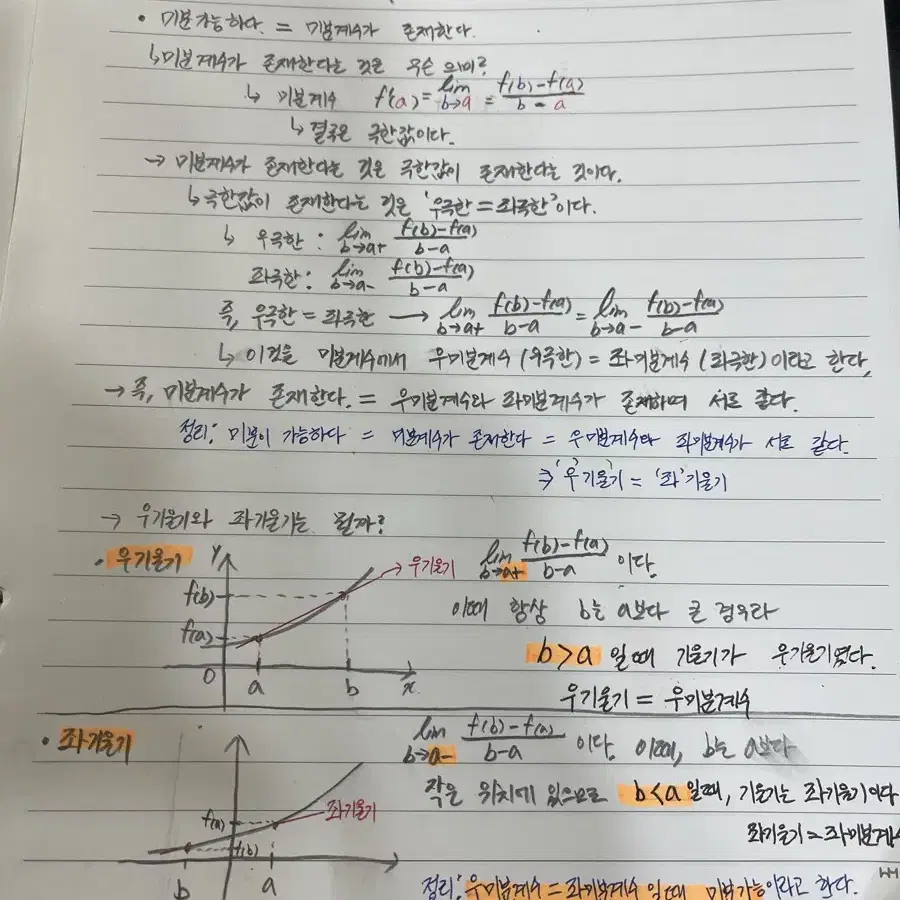 • 미분가능하다. = 미분계수가 존재한다.
↳미분계수가 존재한다는 것은 무슨 의미?
↳ 미분계수 f'(a) = lim b→a = f(b)-f(a) / b-a
↳ 결국은 극한값이다.
→ 미분계수가 존재한다는 것은 극한값이 존재한다는 것이다.
↳극한값이 존재한다는 것은 '우극한=좌극한'이다.
↳ 우극한 : lim b→a+ f(b)-f(a) / b-a
좌극한: lim b→a- f(b)-f(a) / b-a
즉, 우극한=좌극한 → lim b→a+ f(b)-f(a) / b-a = lim b→a- f(b)-f(a) / b-a
↳ 이것을 미분계수에서 우미분계수(우극한) = 좌미분계수(좌극한)이라고 한다,
→ 즉, 미분계수가 존재한다. = 우미분계수와 좌미분계수가 존재하며 서로 같다.
정리: 미분이 가능하다 = 미분계수가 존재한다 = 우미분계수와 좌미분계수가 서로 같다.
⇒ '우'기울기 = '좌'기울기
→ 우기울기와 좌기울기는 뭘까?
• 우기울기
y
f(b)
f(a)
0 a b x
→ 우기울기
lim b→a+ f(b)-f(a) / b-a 이다.
이때 항상 b는 a보다 큰 경우라
b>a 일때 기울기가 우기울기였다.
우기울기 = 우미분계수
• 좌기울기
f(a)
f(b)
b a
좌기울기
lim b→a- f(b)-f(a) / b-a 이다. 이때, b는 a보다
작은 위치에 있으므로 b<a일때, 기울기는 좌기울기이다
좌기울기=좌미분계수
정리: 우미분계수=좌미분계수일때 미분가능이라고 한다.